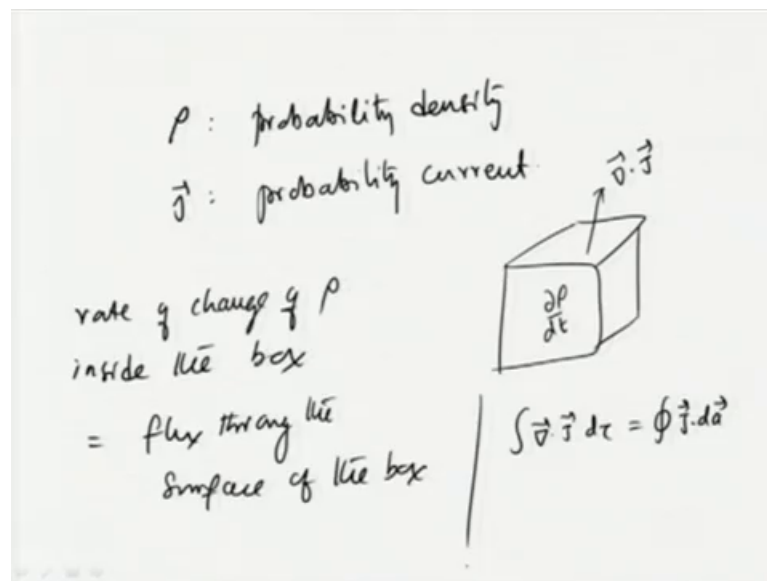 ρ : probability density
J⃗ : probability current.
∇⃗.J⃗
∂ρ/dt
rate of change of ρ
inside the box
= flux throug the
surface of the box
∫ ∇⃗.J⃗ dτ = ∮ J⃗.da⃗